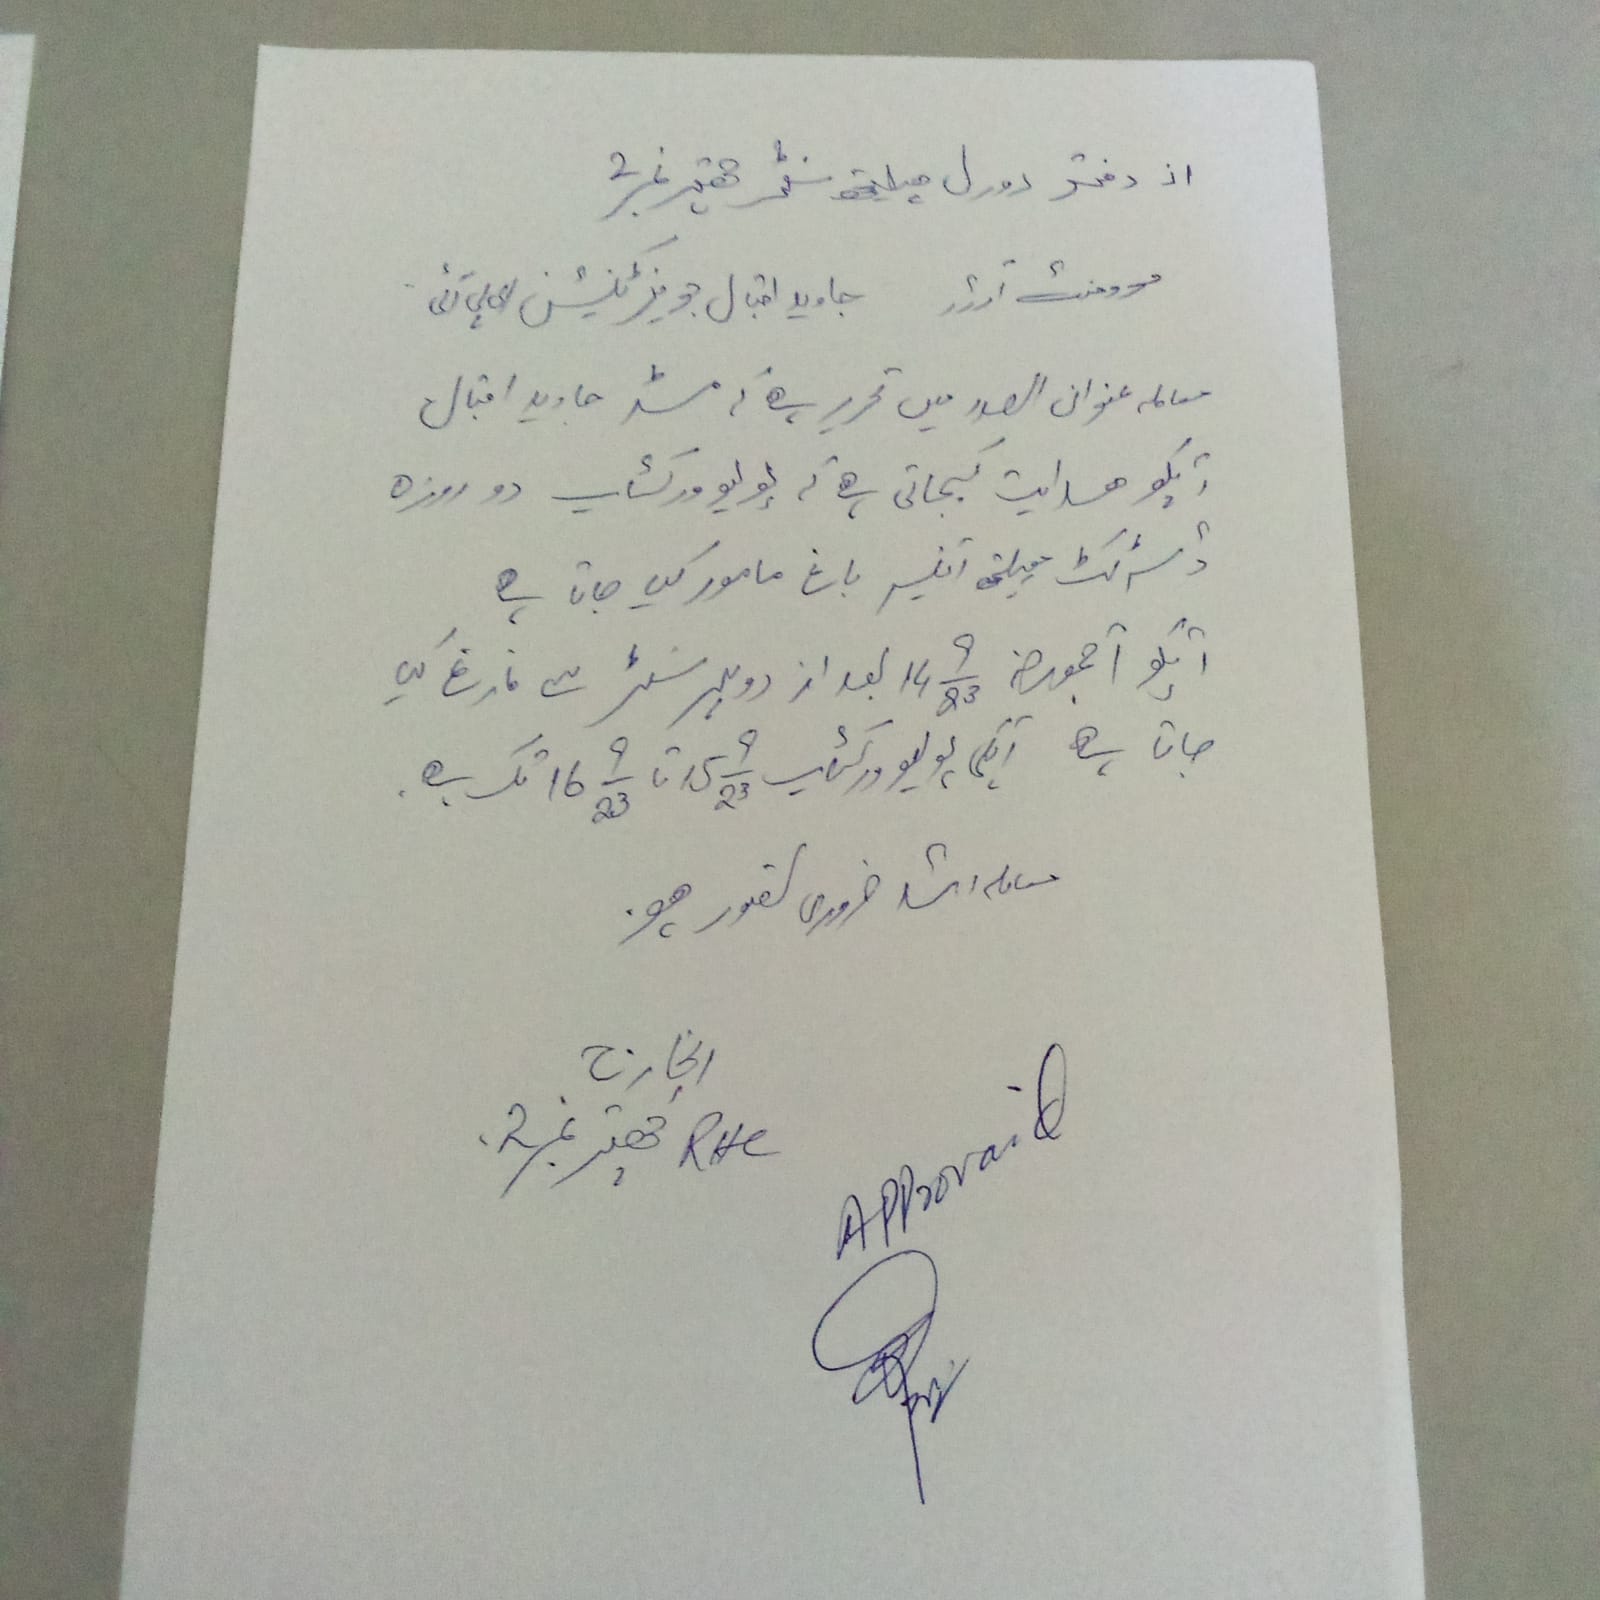 از دفتر رورل ہیلتھ سنٹر چھتر نمبر 2
موومنٹ آرڈر جاوید اقبال جونیئر ٹیکنیشن ای پی آئی
معاملہ عنوان الصدر میں تحریر ہے کہ مسٹر جاوید اقبال
آپکو ھدایت کیجاتی ہے کہ پولیو ورکشاپ دو روزہ
ڈسٹرکٹ ہیلتھ آفیسر باغ مامور کیا جاتا ہے
آپکو آجمورخہ 14 9/23 بعد از دوپہر سنٹر سے فارغ کیا
جاتا ہے آپکی پولیو ورکشاپ 15 9/23 تا 16 9/23 تک ہے۔
معاملہ اشد ضروری تصور ہو۔
انچارج
RHC چھتر نمبر 2۔
APProvaid